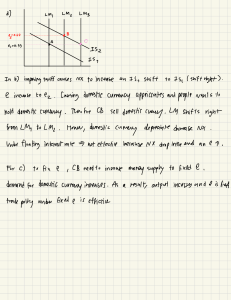 d)
LM₁ LM₂ LM₃
B
A
IS₂
IS₁
In b) imposing tariff causes NX to increase an IS₁ shift to IS₂ (shift right).
e increase to e₂. Causing domestic currency appreciates and people wants to
hold domestic currency. Therefor CB sell domestic currency. LM shifts right
from LM₁ to LM₂. Hence, domestic currency depreciate decrease NX.
Under floating interest rate ⇒ not effective because NX drop in the end an e↑.
For c) to fix e, CB need to increase money supply to fixed e.
demand for domestic currency increases. As a result, output increases and e is fixed
trade policy under fixed e is effective